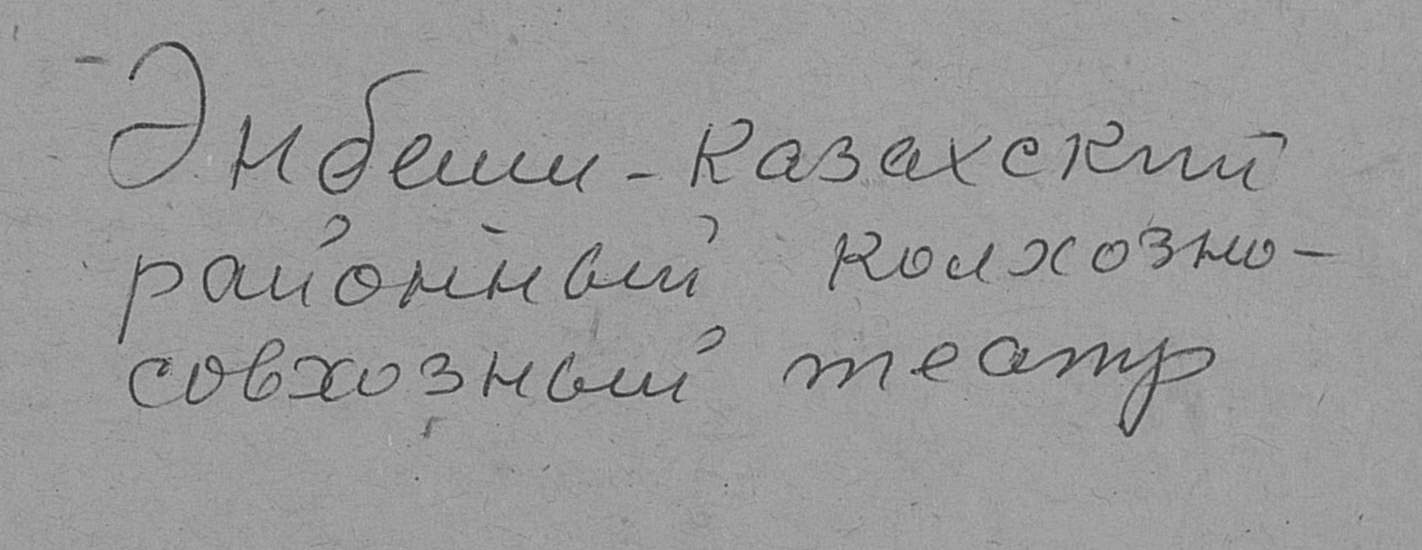 Энбеши-казахский
районный колхозно-
совхозный театр